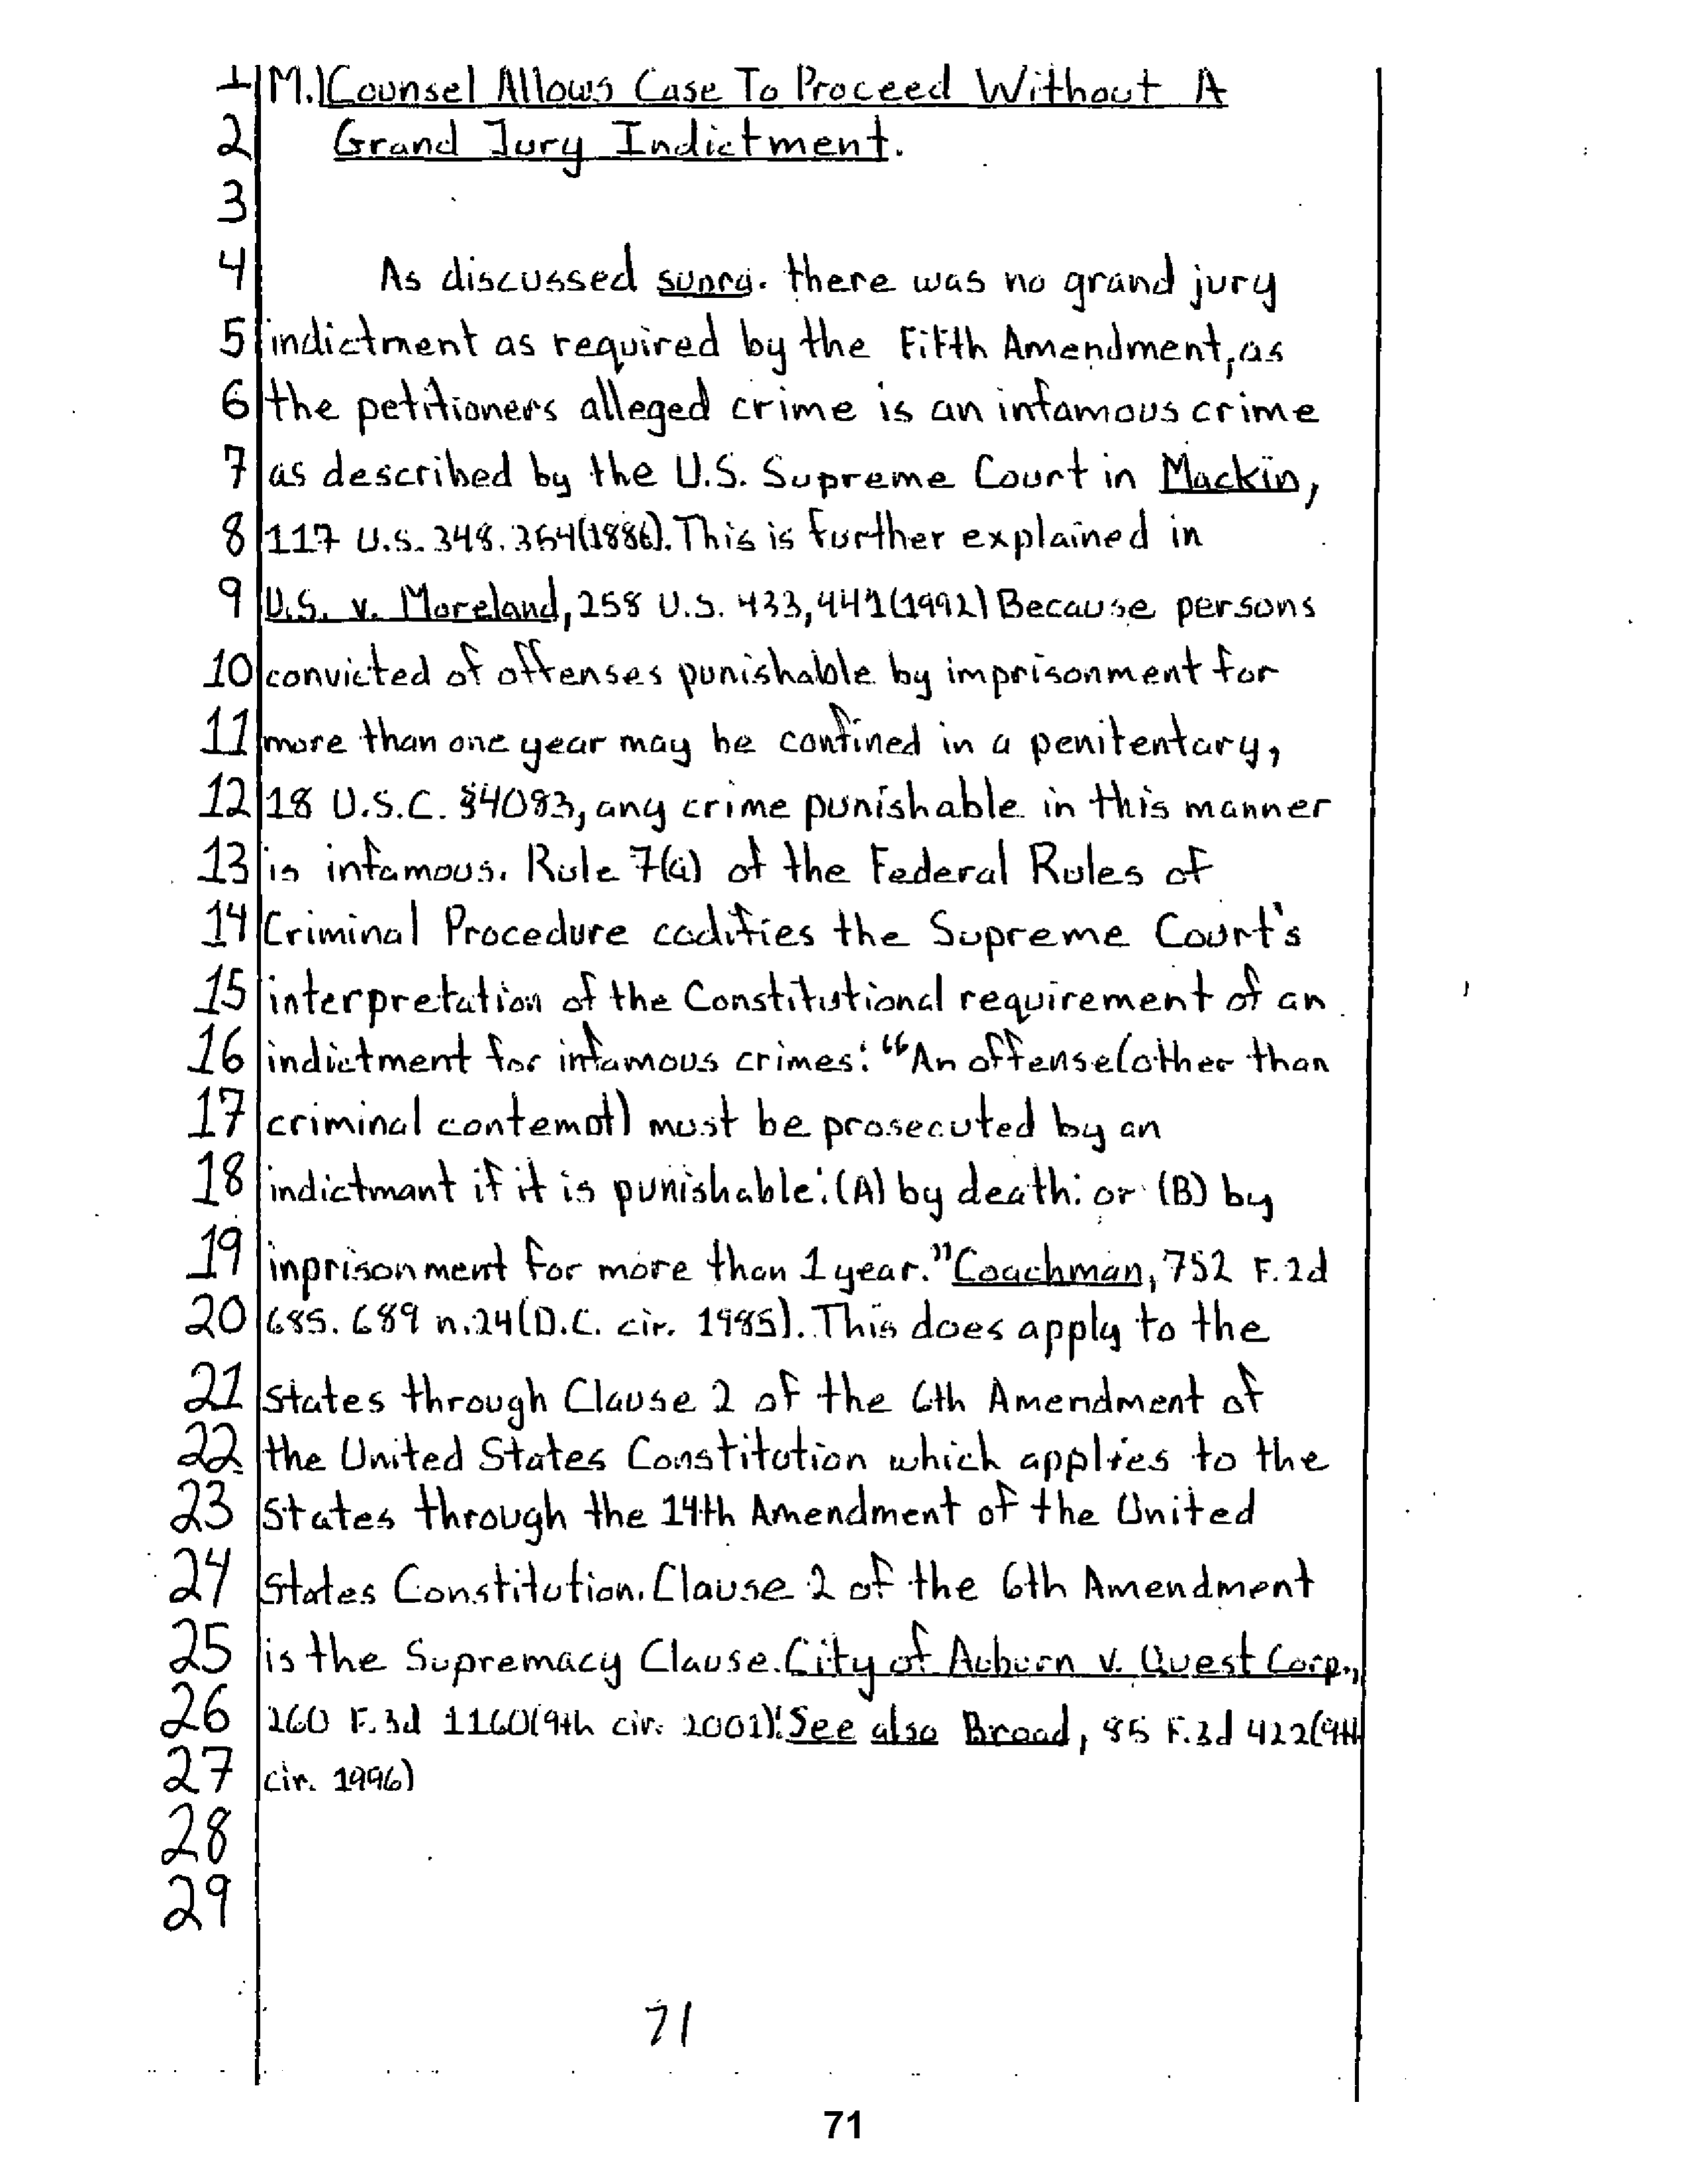 1 M.) Counsel Allows Case To Proceed Without A
2 Grand Jury Indictment.
3
4 As discussed supra. there was no grand jury
5 indictment as required by the Fifth Amendment, as
6 the petitioners alleged crime is an infamous crime
7 as described by the U.S. Supreme Court in Mackin,
8 117 U.S. 348. 354(1886). This is further explained in
9 U.S. v. Moreland, 258 U.S. 433, 441(1992) Because persons
10 convicted of offenses punishable by imprisonment for
11 more than one year may be confined in a penitentary,
12 18 U.S.C. §4083, any crime punishable in this manner
13 is infamous. Rule 7(a) of the Federal Rules of
14 Criminal Procedure codifies the Supreme Court's
15 interpretation of the Constitutional requirement of an
16 indictment for infamous crimes: "An offense(other than
17 criminal contempt) must be prosecuted by an
18 indictmant if it is punishable: (A) by death: or (B) by
19 inprisonment for more than 1 year." Coachman, 752 F.2d
20 685. 689 n.24(D.C. cir. 1985). This does apply to the
21 States through Clause 2 of the 6th Amendment of
22 the United States Constitution which applies to the
23 States through the 14th Amendment of the United
24 States Constitution. Clause 2 of the 6th Amendment
25 is the Supremacy Clause. City of Auburn v. Quest Corp.,
26 260 F.3d 1160(9th cir. 2001)! See also Broad, 85 F.3d 422(9th
27 cir. 1996)
28
29
71
71